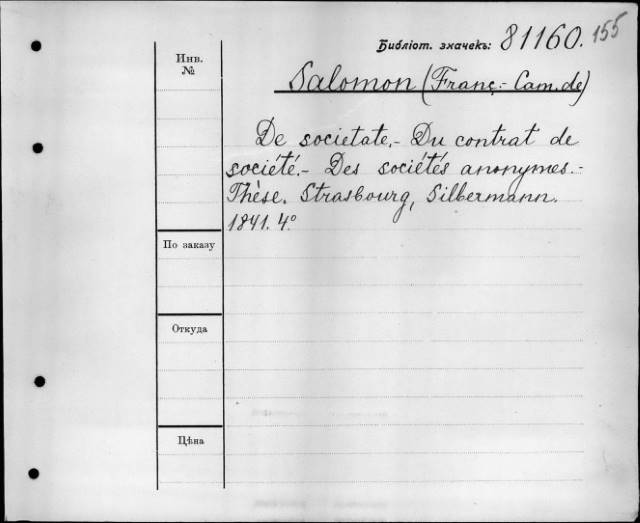 155
Библіот. значекъ: 81160.
Инв.
№
Salomon (Franç.- Cam. de)
De societate.- Du contrat de
société.- Des sociétés anonymes.-
Thèse. Strasbourg, Silbermann.
1841. 4°
По заказу
Откуда
Цѣна